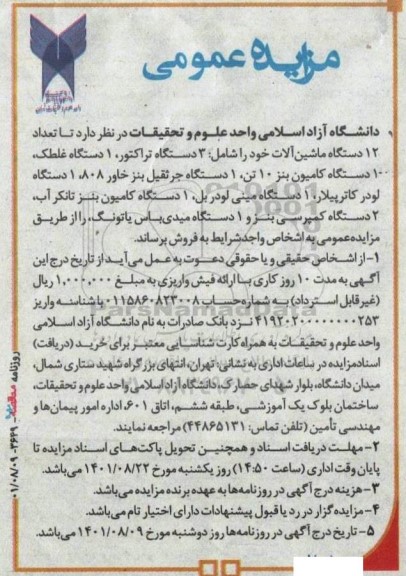 مزایده عمومی
دانشگاه آزاد اسلامی واحد علوم و تحقیقات در نظر دارد تا تعداد
۱۲ دستگاه ماشین‌آلات خود را شامل: ۳ دستگاه تراکتور، ۱ دستگاه غلطک،
۱ دستگاه کامیون بنز ۱۰ تن، ۱ دستگاه جرثقیل بنز خاور ۸۰۸، ۱ دستگاه
لودر کاترپیلار، ۱ دستگاه مینی لودر بل، ۱ دستگاه کامیون بنز تانکر آب،
۲ دستگاه کمپرسی بنز و ۱ دستگاه میدی‌باس یاتونگ، را از طریق
مزایده عمومی به اشخاص واجد شرایط به فروش برساند.
۱- از اشخاص حقیقی و یا حقوقی دعوت به عمل می‌آید از تاریخ درج این
آگهی به مدت ۱۰ روز کاری با ارائه فیش واریزی به مبلغ ۱,۰۰۰,۰۰۰ ریال
(غیرقابل استرداد) به شماره حساب ۰۱۱۵۸۶۰۸۲۳۰۰۸ با شناسه واریز
۴۱۹۲۰۲۰۰۰۰۰۰۰۲۵۳ نزد بانک صادرات به نام دانشگاه آزاد اسلامی
واحد علوم و تحقیقات به همراه کارت شناسایی معتبر برای خرید (دریافت)
اسناد مزایده در ساعات اداری به نشانی: تهران، انتهای بزرگراه شهید ستاری شمال،
میدان دانشگاه، بلوار شهدای حصارک، دانشگاه آزاد اسلامی واحد علوم و تحقیقات،
ساختمان بلوک یک آموزشی، طبقه ششم، اتاق ۶۰۱، اداره امور پیمان‌ها و
مهندسی تأمین (تلفن تماس: ۴۴۸۶۵۱۳۱) مراجعه نمایند.
۲- مهلت دریافت اسناد و همچنین تحویل پاکت‌های اسناد مزایده تا
پایان وقت اداری (ساعت ۱۴:۵۰) روز یکشنبه مورخ ۱۴۰۱/۰۸/۲۲ می‌باشد.
۳- هزینه درج آگهی در روزنامه‌ها به عهده برنده مزایده می‌باشد.
۴- مزایده‌گزار در رد یا قبول پیشنهادات دارای اختیار تام می‌باشد.
۵- تاریخ درج آگهی در روزنامه‌ها روز دوشنبه مورخ ۱۴۰۱/۰۸/۰۹ می‌باشد.
روزنامه ۳۶۶۹ - ۰۱/۰۸/۰۹
ParsNamadData